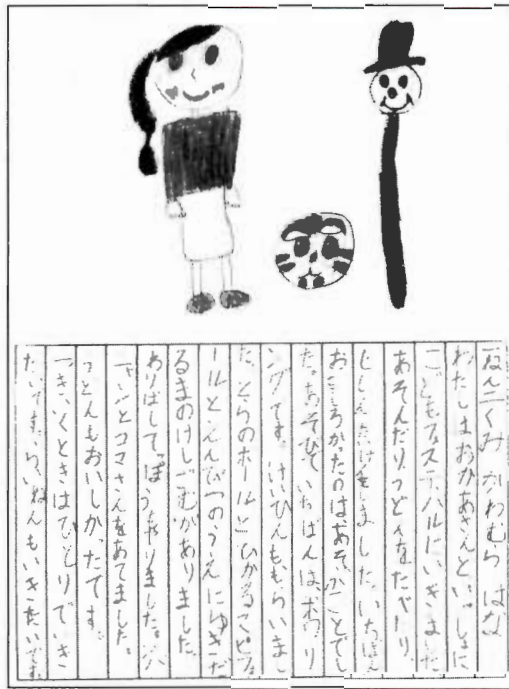 一ねん二くみ かわむら はな
わたしはおかあさんといっしょに
こどもフェスティバルにいきました
あそんだり、うどんをたべたり
じしんたいけんをしました。いちばん
おもしろかったのはあそぶことでし
た。あそびでいちばんは、ボウリ
ングです。けいひんももらいまし
た。とらのボールとひかる
ールとえんぴつのうえにゆきだ
るまのけしごむがありました。
わりばしてっぽうもやりました。
とコマさんをあてました。
うどんもおいしかたてす。
つぎいくときはひとりでいき
たいです。らいねんもいきたいです。